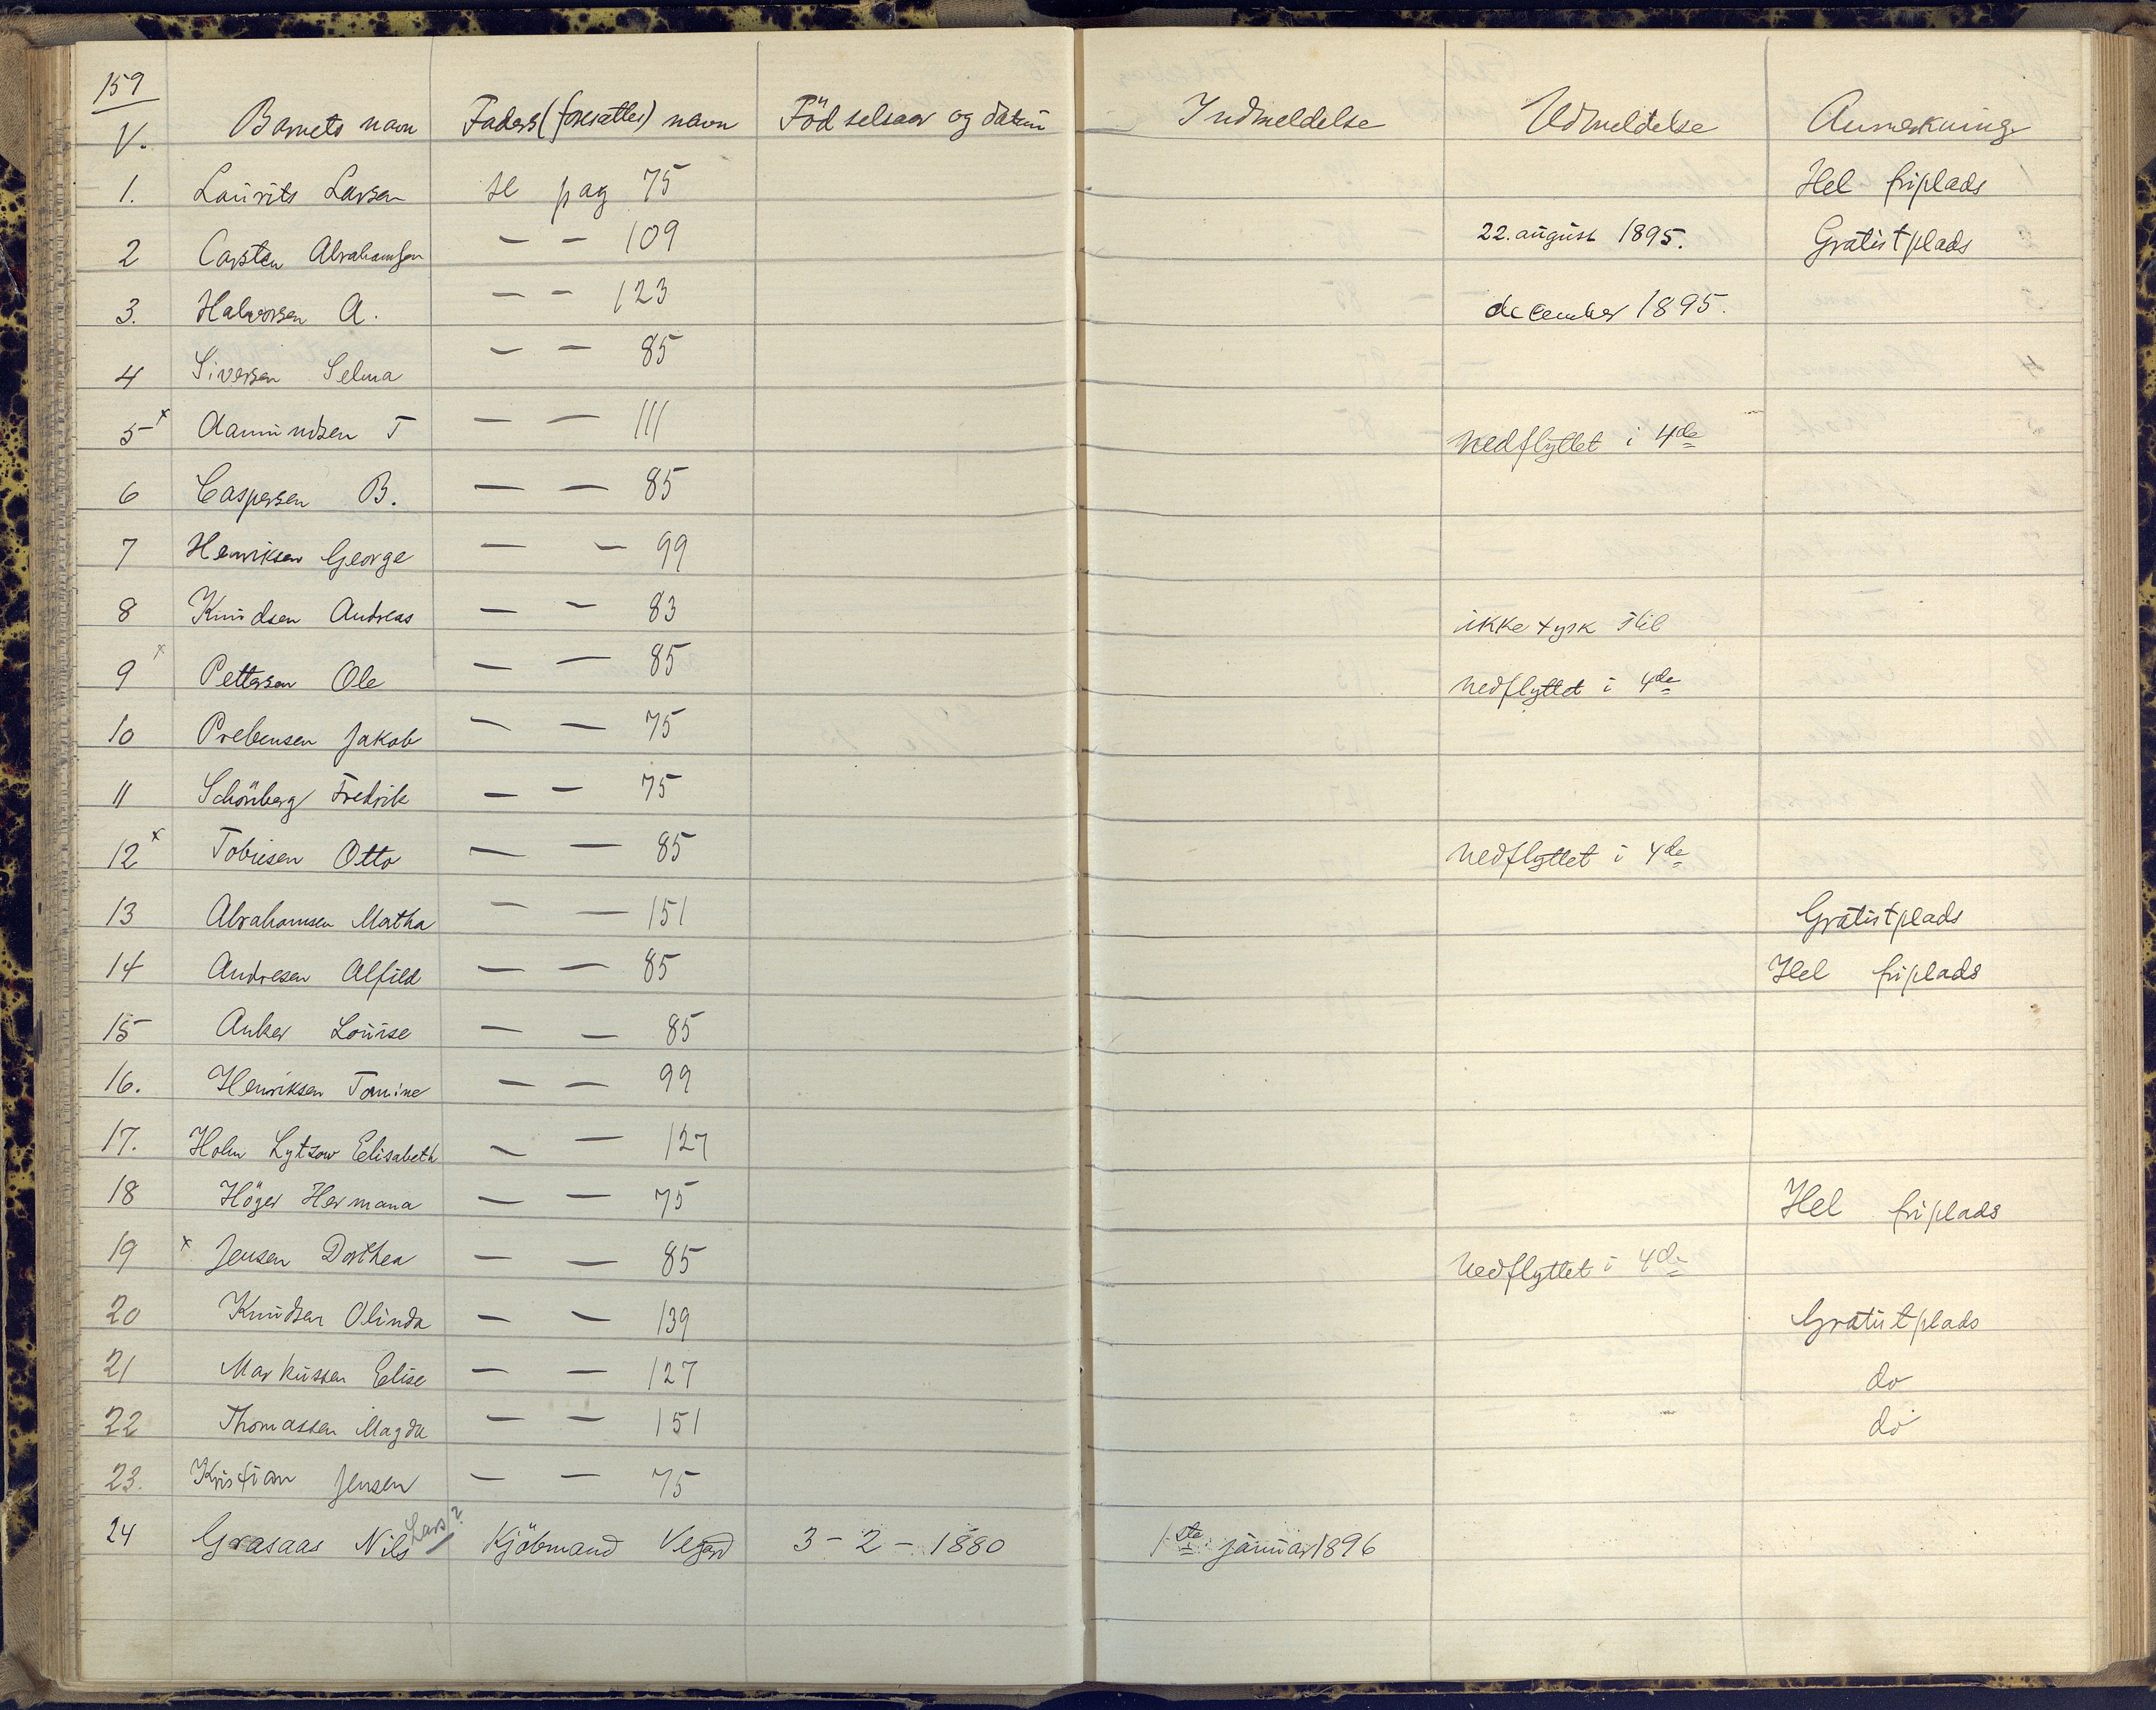 159
V. Barnets navn Faders (foresattes) navn Födselsaar og datum Indmeldelse Udmeldelse Anmerkning
1. Laurits Larsen se pag 75 Hel friplads
2 Carsten Abrahamsen — — 109 22. august 1895. Gratistplads
3. Halvorsen A. — — 123 december 1895.
4 Siversen Selma — — 85
5 x Aamundsen T — — 111 nedflyttet i 4de
6 Caspersen B. — — 85
7 Henriksen George — — 99
8 Knudsen Andreas — — 83 ikke tysk stil
9 x Pettersen Ole — — 85 nedflyttet i 4de
10 Prebensen Jakob — — 75
11 Schönberg Fredrik — — 75
12 x Tobiesen Otto — — 85 nedflyttet i 4de
13 Abrahamsen Martha — — 151 Gratistplads
14 Andresen Alfild — — 85 Hel friplads
15 Anker Louise — — 85
16. Henriksen Tomine — — 99
17. Holm Lytzow Elisabeth — — 127
18 Höyer Hermana — — 75 Hel friplads
19 x Jensen Dorthea — — 85 nedflyttet i 4de
20 Knudsen Olinda — — 139 Gratistplads
21 Markussen Elise — — 127 do
22 Thomassen Magda — — 151 do
23. Kristian Jensen — — 75
24 Grasaas Nils Lars? Kjöbmand Vegard 3 - 2 - 1880 1ste januar 1896